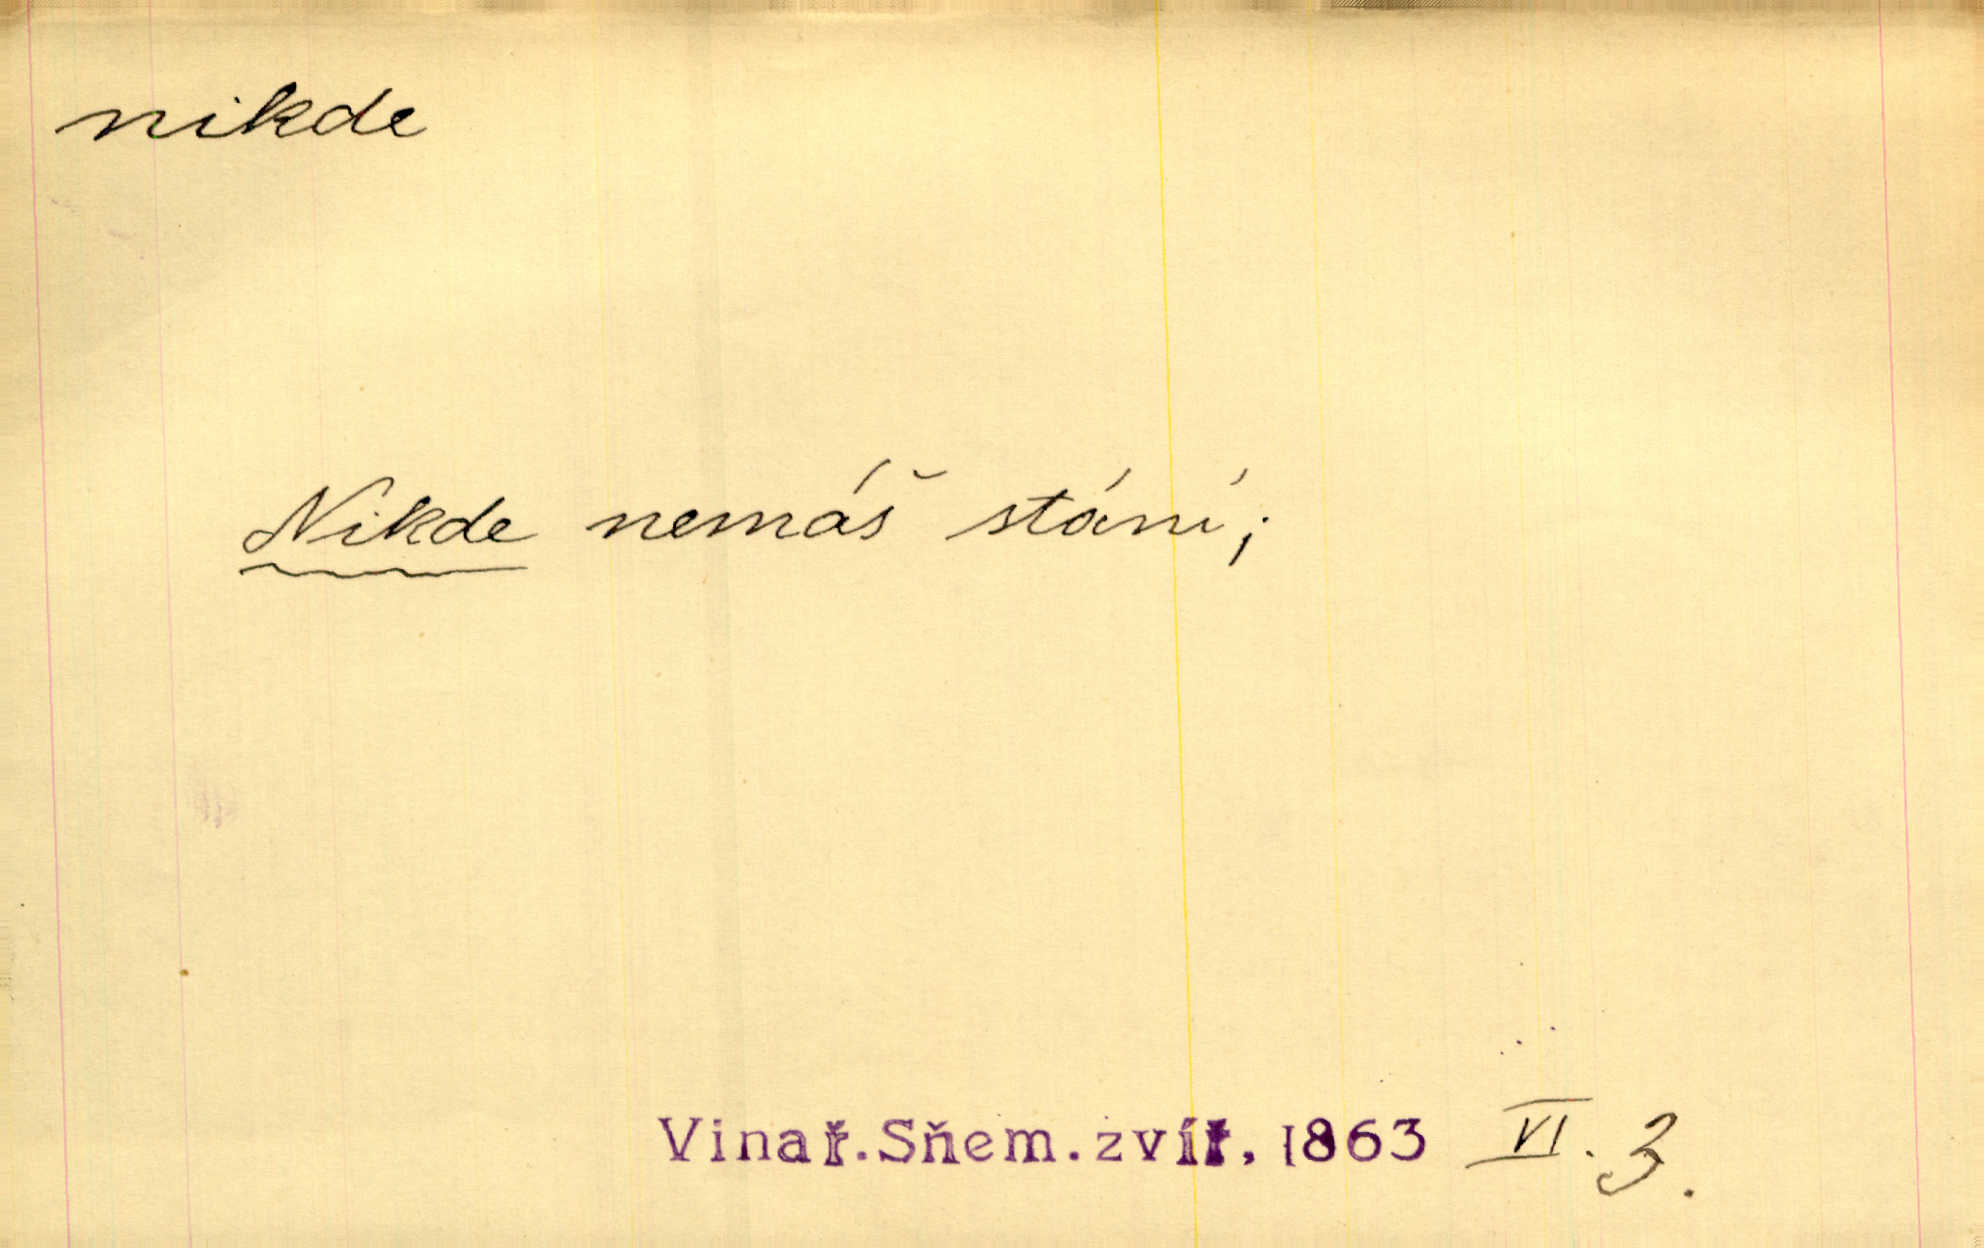 nikde
Nikde nemáš stání;
Vinař. Sňem. zvíř. 1863 VI. 3.